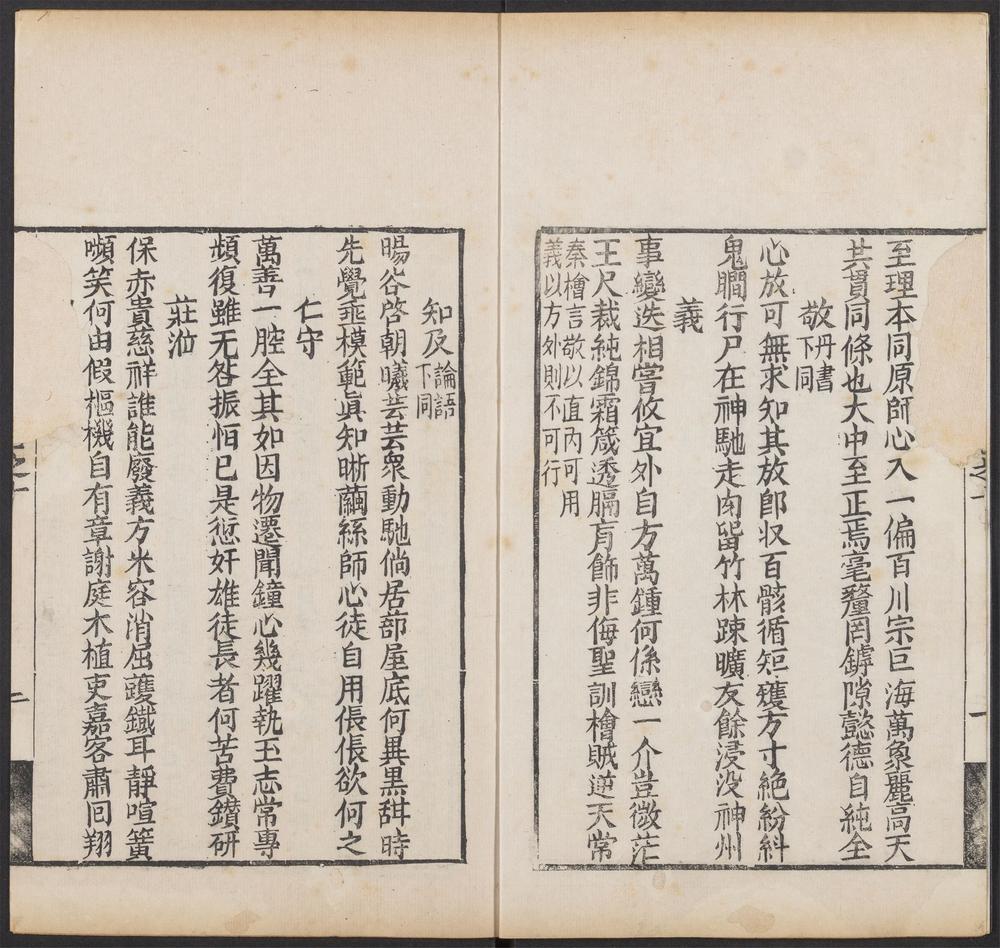 至理本同原師心入一偏百川宗巨海萬象麗高天
共貫同條也大中至正焉毫釐罔罅隙懿德自純全
敬丹書下同
心放可無求知其放卽収百骸循短蒦方寸絶紛糾
鬼瞷行尸在神馳走肉畱竹林踈曠友餘浸没神州
義
事變迭相嘗攸宜外自方萬鍾何係戀一介豈微茫
王尺裁純錦霜箴透膈肓飾非侮聖訓檜賊逆天常
秦檜言敬以直內可用
義以方外則不可行
知及論語下同
暘谷啓朝曦芸芸衆動馳倘居蔀屋底何異黒甜時
先覺乖模範眞知晰繭絲師心徒自用倀倀欲何之
仁守
萬善一腔全其如因物遷聞鐘心幾躍執玉志常專
頻復雖无咎振怕已是愆奸雄徒長者何苦費鑚研
莊涖
保赤貴慈祥誰能廢義方米容消屈蠖鐵耳靜喧簧
嚬笑何由假樞機自有章謝庭木植吏嘉客肅囘翔
之一
二
一